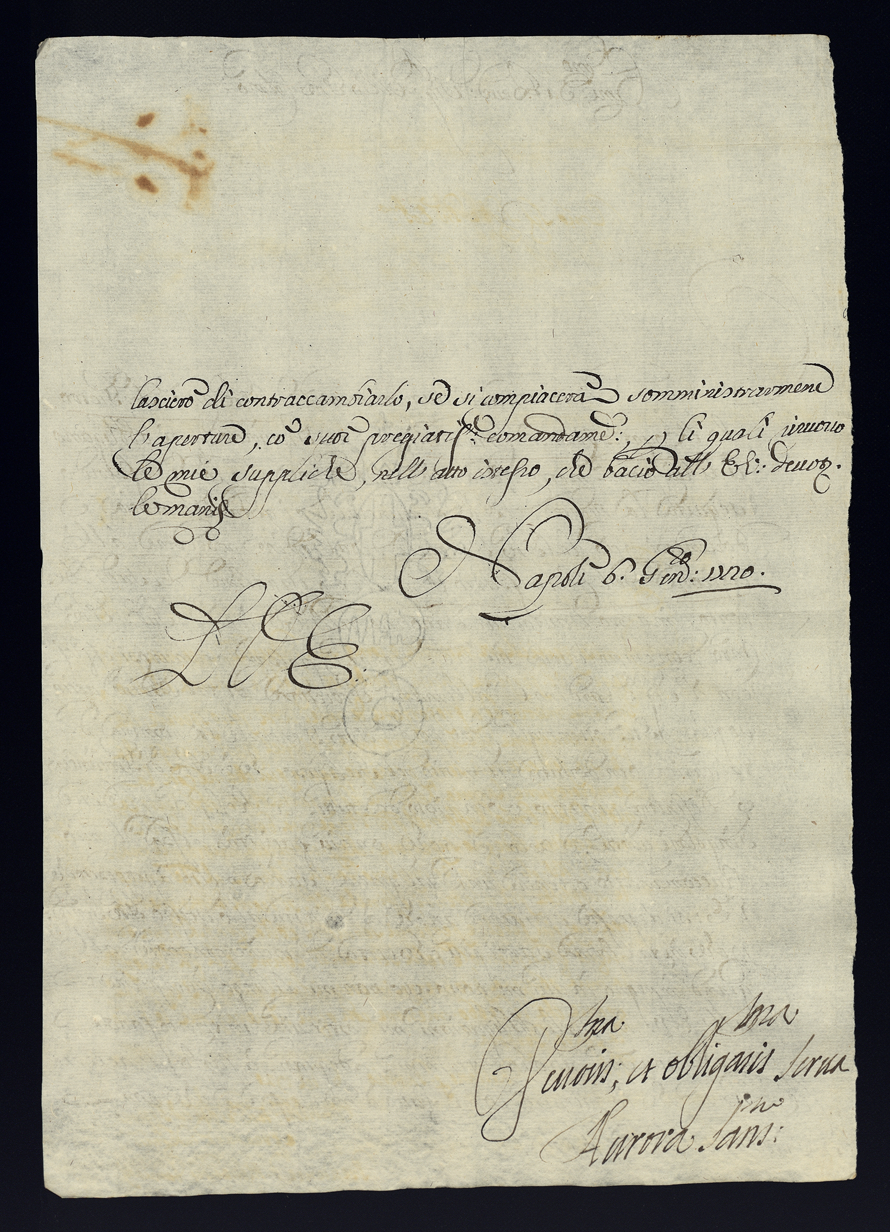 lascierò di contraccambiarlo, se si compiacerà somministrarmene
l'aperture, cõ suoi pregiatis.mi comandam.ti, li quali
le mie suppliche, nell'atto istesso, che bacio all' E: V: deuot.
le mani
Napoli 6. Gen.ro 1720.
Deuotis.ma, et obligatis.ma Serua
Aurora Sans:no